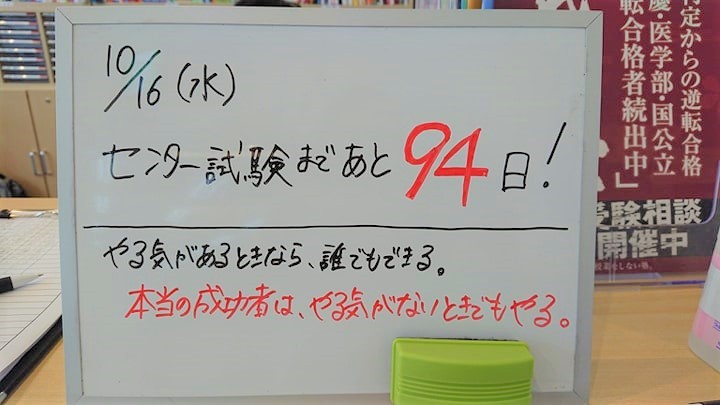 10/16(水)
センター試験まであと94日!
やる気があるときなら、誰でもできる。
本当の成功者は、やる気がないときでもやる。
定からの逆転合格
慶・医学部・国公立
転合格者続出中
」
受験相談
開催中